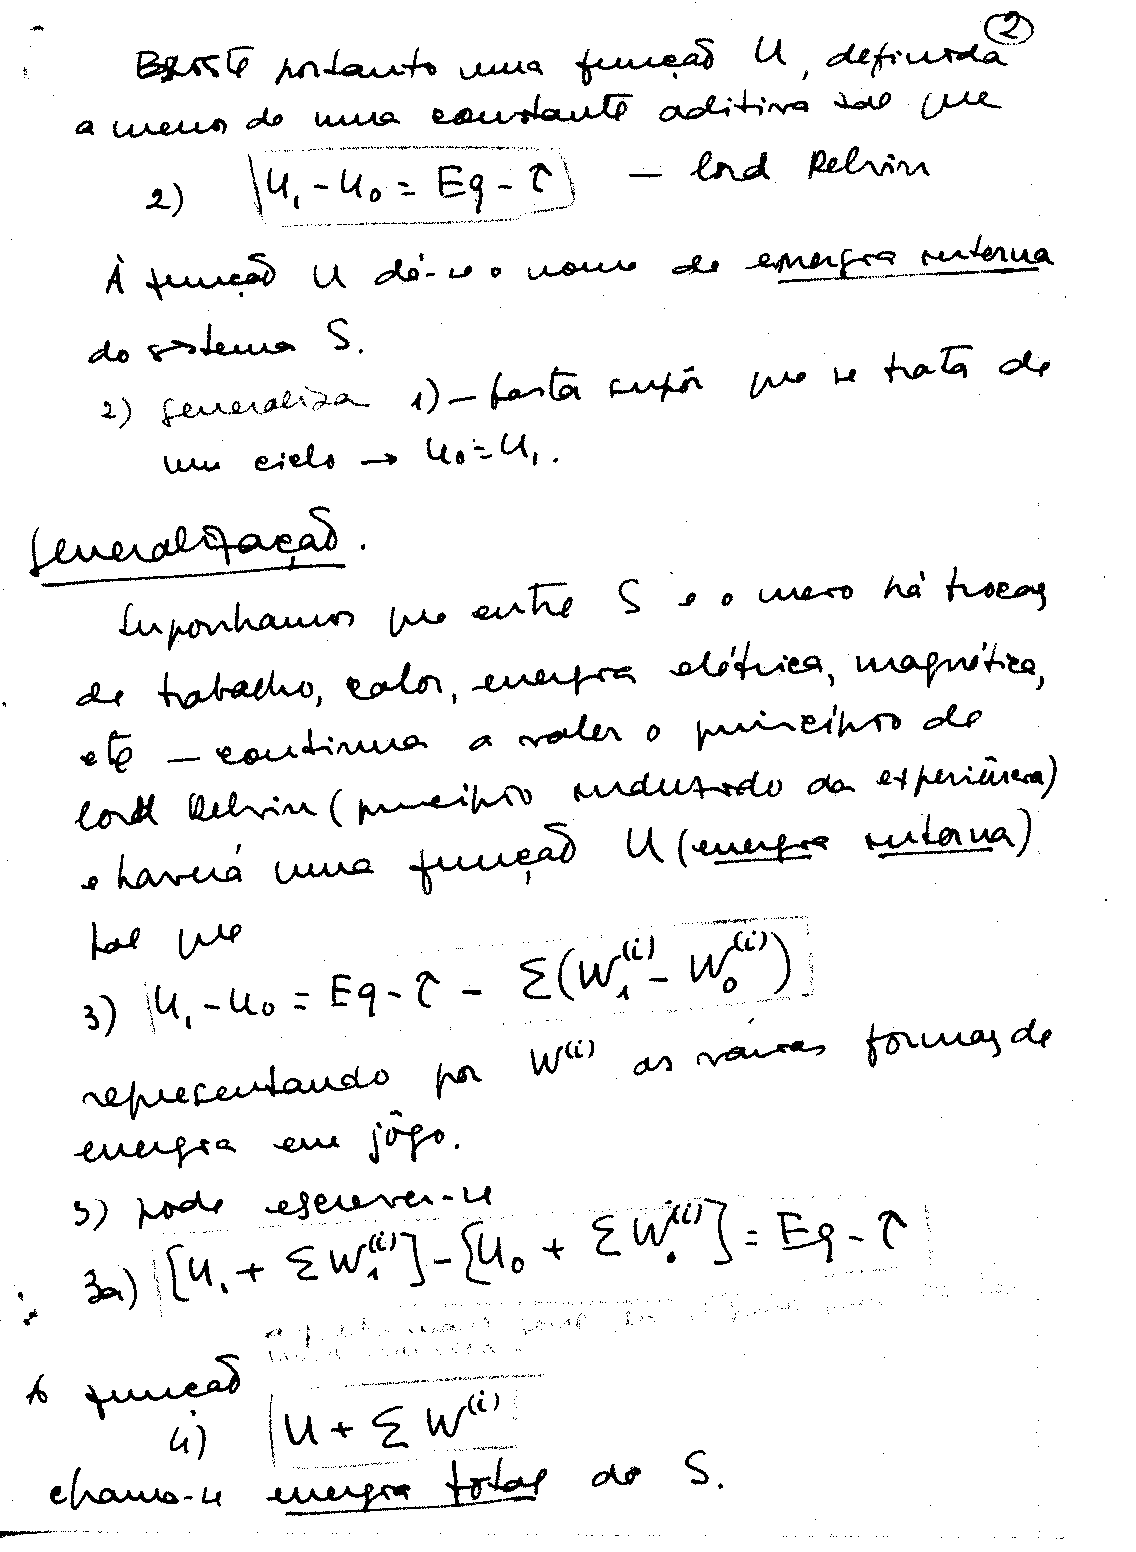 2
Existe portanto uma função U, definida
a menos de uma constante aditiva tal que
2) U₁ - U₀ = Eq - τ — lord Kelvin
À função U dá-se o nome de energia interna
do sistema S.
2) generaliza 1) — basta supôr que se trata de
um ciclo → U₀ = U₁.
Generalização.
Suponhamos que entre S e o meio há trocas
de trabalho, calor, energia elétrica, magnética,
etc — continua a valer o princípio de
lord Kelvin (princípio induzido da experiência)
e haverá uma função U (energia interna)
tal que
3) U₁ - U₀ = Eq - τ - Σ(W₁⁽ⁱ⁾ - W₀⁽ⁱ⁾)
representando por W⁽ⁱ⁾ as várias formas de
energia em jôgo.
3) pode escrever-se
3a) [U₁ + ΣW₁⁽ⁱ⁾] - [U₀ + ΣW₀⁽ⁱ⁾] = Eq - τ
A função
4) U + ΣW⁽ⁱ⁾
chama-se energia total de S.